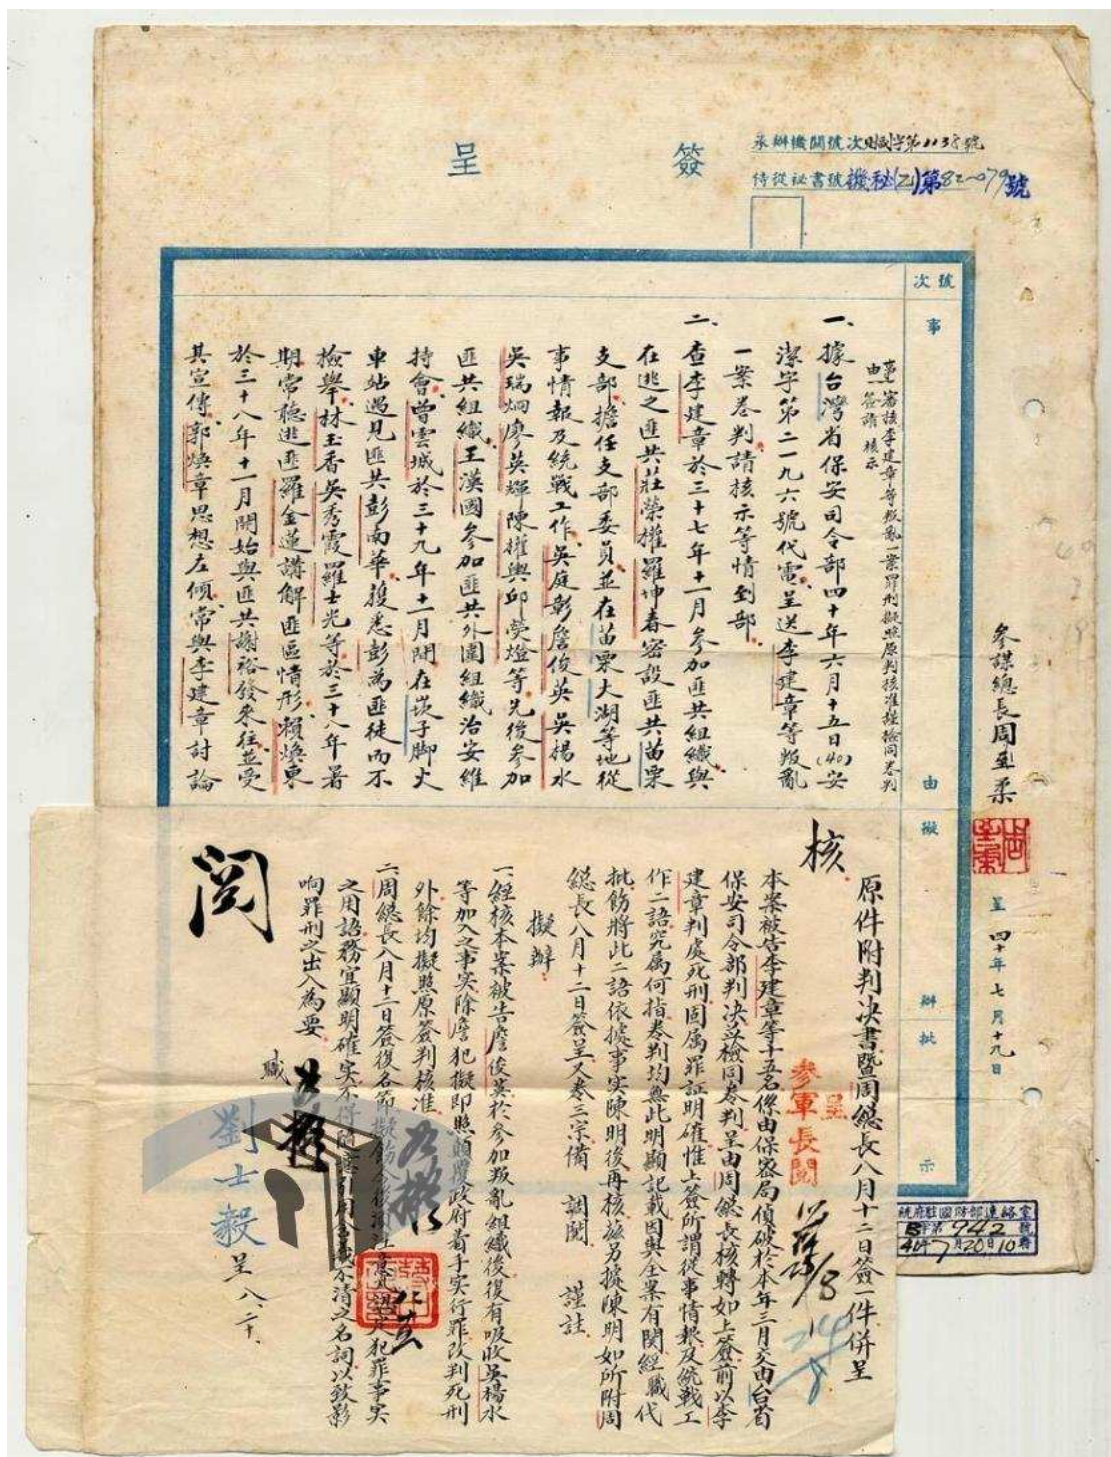 簽呈
承辦機關號次
侍從秘書號機秘(乙)第82-079號
號次
事由擬辦批示
參謀總長周至柔
呈 四十年七月十九日
事由 審核李建章等叛亂一案罪刑擬照原判核准謹檢同卷判簽請 核示
一、據台灣省保安司令部四十年六月十五日(40)安
潔字第二一九六號代電呈送李建章等叛亂
一案卷判請核示等情到部
二、查李建章於三十七年十一月參加匪共組織與
在逃之匪共莊榮權羅坤春密設匪共苗栗
支部擔任支部委員並在苗栗大湖等地從
事情報及統戰工作吳庭彰詹俊英吳楊水
吳瑞炯廖英輝陳權興邱熒燈等先後參加
匪共組織王漢國參加匪共外圍組織治安維
持會曾雲城於三十九年十一月間在崁子脚火
車站遇見匪共彭南華獲悉彭為匪徒而不
檢舉林玉香吳秀霞羅士光等於三十八年暑
期常聽逃匪羅金蓮講解匪區情形賴煥東
於三十八年十一月開始與匪共謝裕發來往並受
其宣傳郭煥章思想左傾常與李建章討論
總府駐國防部連絡室
第942號
40年7月20日10時
核
原件附判決書暨周總長八月十二日簽一件併呈
呈
參軍長閱
本案被告李建章等十五名係由保密局偵破於本年三月交由台省
保安司令部判決並檢同卷判呈由周總長核轉如上簽前以李
建章判處死刑固屬罪証明確惟上簽所謂從事情報及統戰工
作二語究屬何指卷判均無此明顯記載因與全案有関經職代
批飭將此二語依據事实陳明後再核茲另據陳明如所附周
總長八月十二日簽呈又卷三宗備 調閱 謹註
擬辦
一、經核本案被告詹俊英於參加叛亂組織後復有吸收吳楊水
等加入之事实除詹犯擬即照顛覆政府着手实行罪改判死刑
外餘均擬照原簽判核准
二、周總長八月十二日簽復各節擬飭今後須注意凡認定犯罪事实
之用語務宜顯明確实不得隨意引用含義不清之名詞以致影
响罪刑之出入為要
職 劉士毅 呈 八、二十、
閱